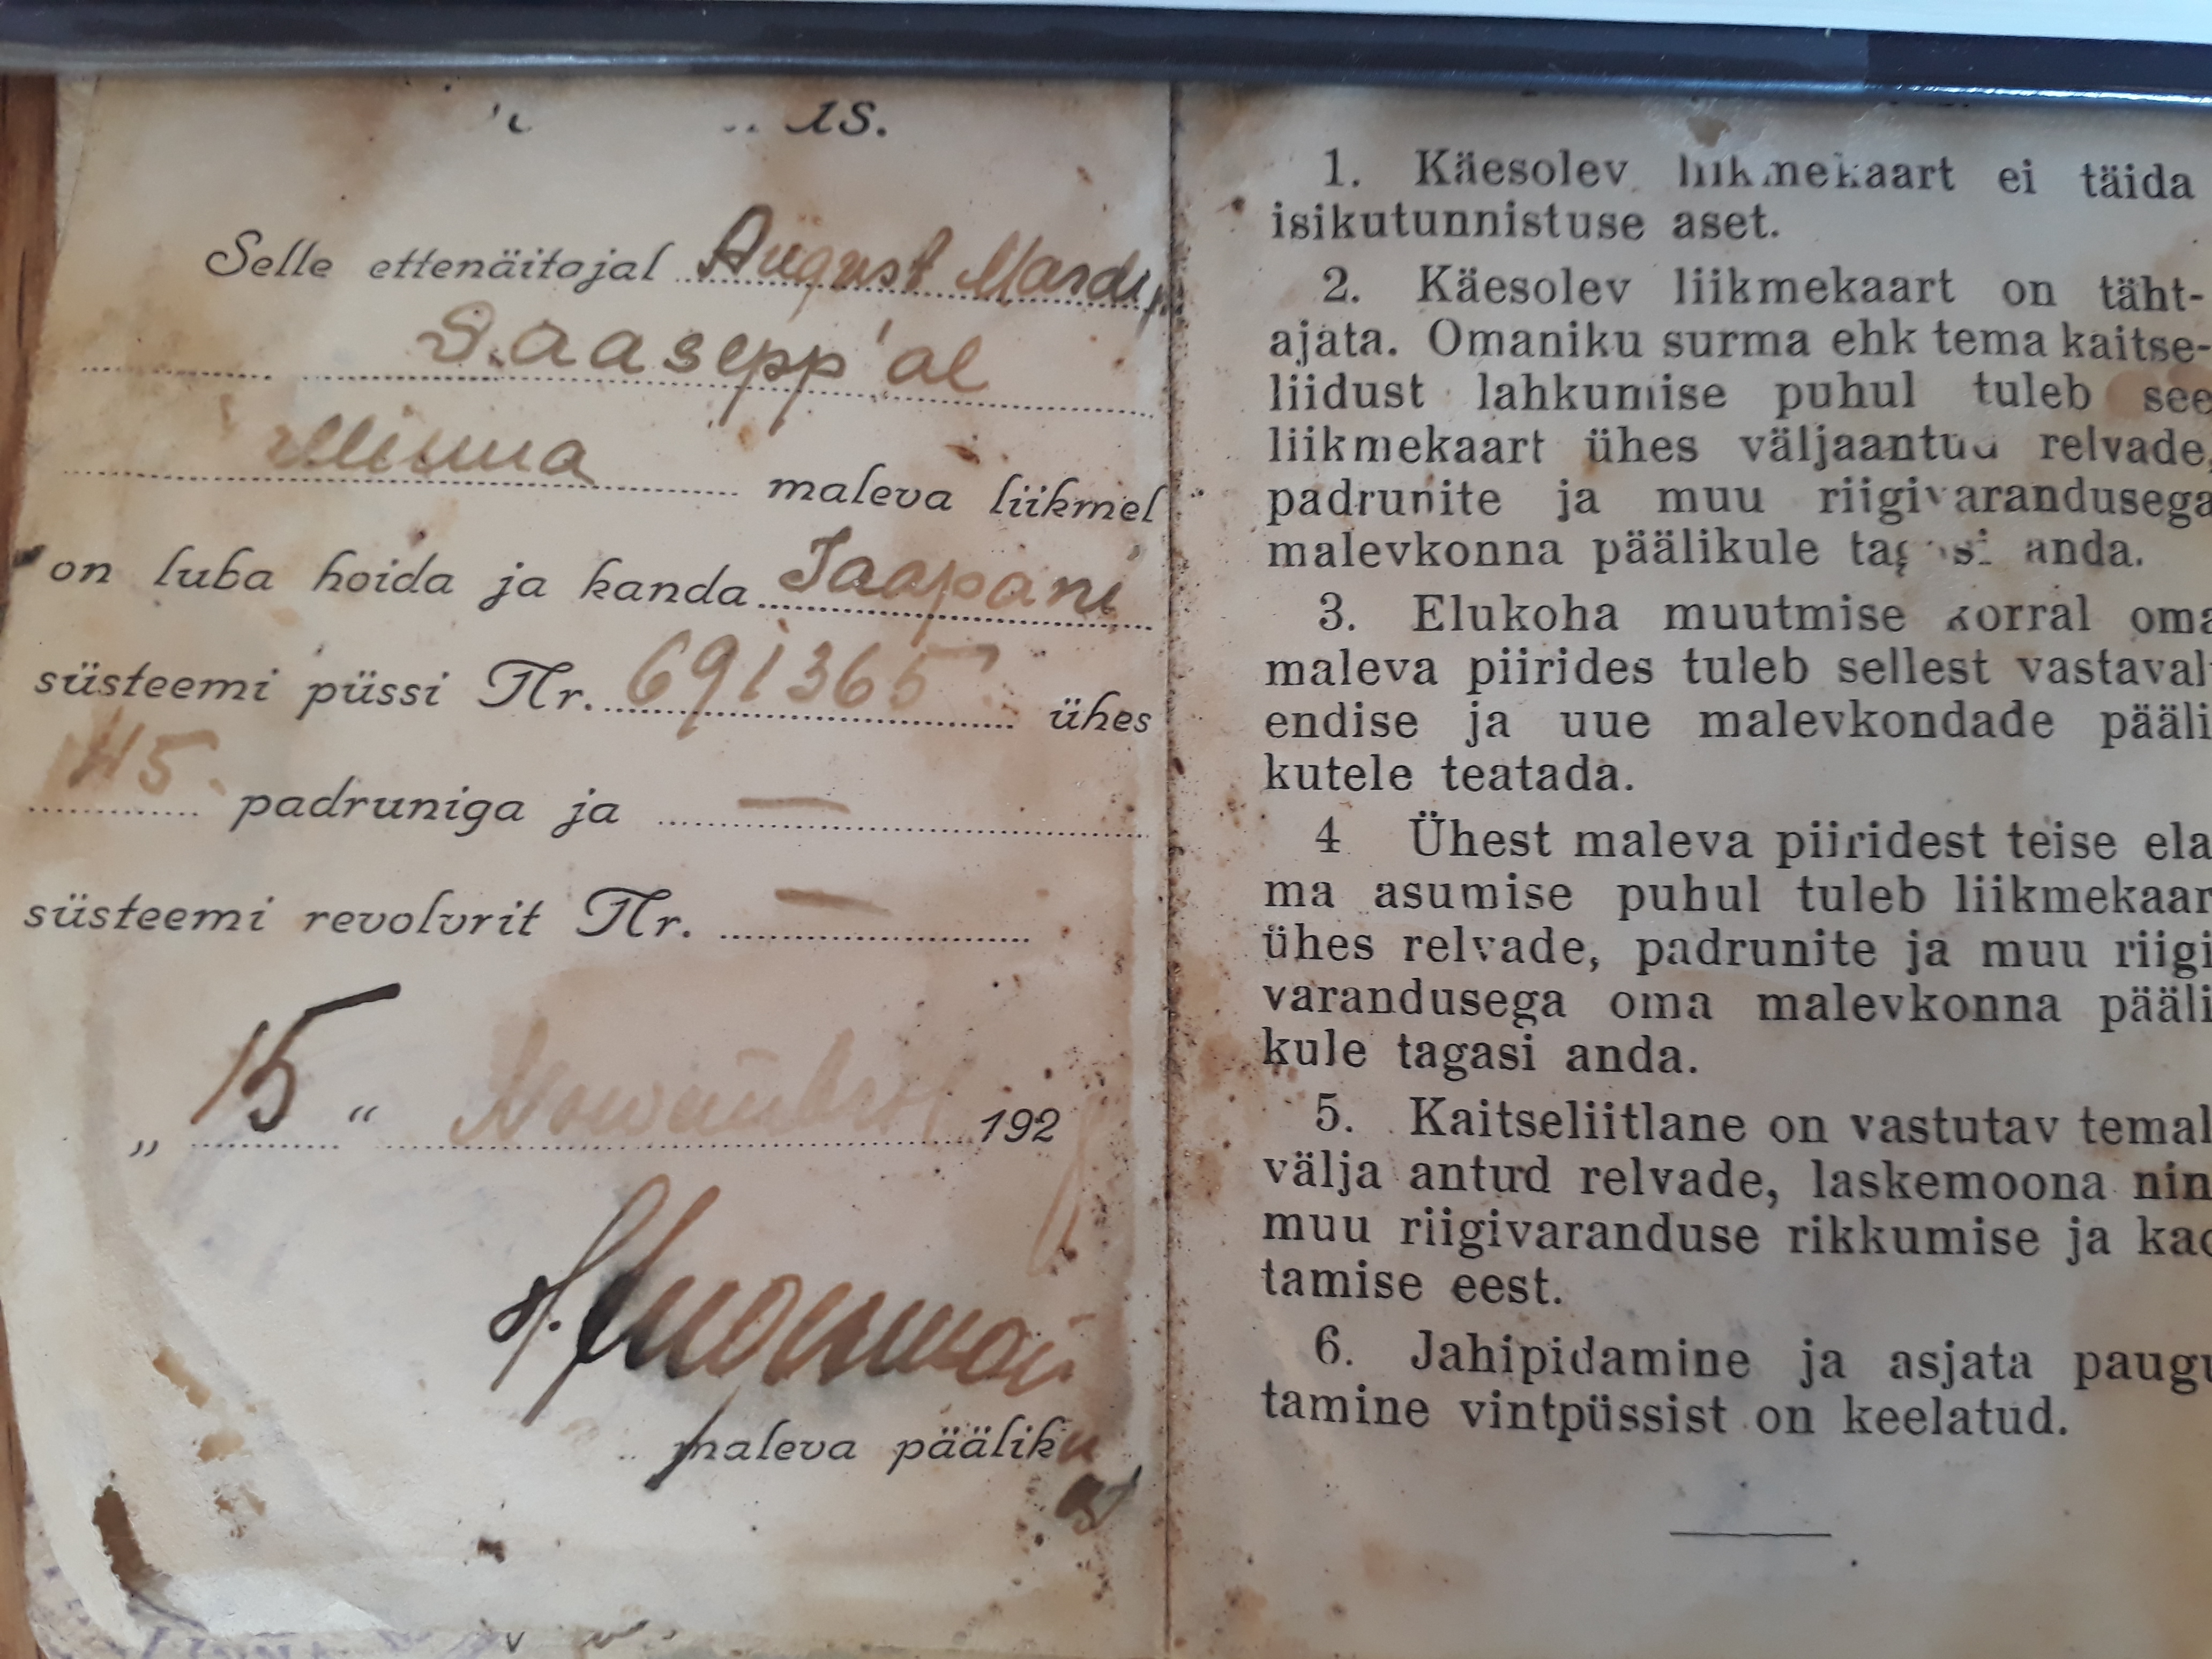 Selle ettenäitajal August Mardi p.
Saasepp'al
maleva liikmel
on luba hoida ja kanda Jaapani
süsteemi püssi Nr. 691365 ühes
45. padruniga ja —
süsteemi revolvrit Nr. —
„ 15 “ Nowembril 192
maleva päälik
1. Käesolev liikmekaart ei täida
isikutunnistuse aset.
2. Käesolev liikmekaart on täht-
ajata. Omaniku surma ehk tema kaitse-
liidust lahkumise puhul tuleb see
liikmekaart ühes väljaantud relvade,
padrunite ja muu riigivarandusega
malevkonna päälikule tagasi anda.
3. Elukoha muutmise korral oma
maleva piirides tuleb sellest vastaval
endise ja uue malevkondade pääli
kutele teatada.
4 Ühest maleva piiridest teise ela
ma asumise puhul tuleb liikmekaar
ühes relvade, padrunite ja muu riigi
varandusega oma malevkonna pääli
kule tagasi anda.
5. Kaitseliitlane on vastutav temal
välja antud relvade, laskemoona nin
muu riigivaranduse rikkumise ja kao
tamise eest.
6. Jahipidamine ja asjata paugu
tamine vintpüssist on keelatud.